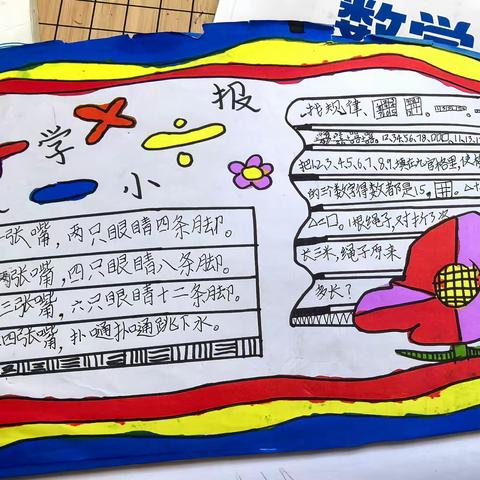 数学
报
学
小
一张嘴，两只眼睛四条脚。
两张嘴，四只眼睛八条脚。
三张嘴，六只眼睛十二条脚。
四张嘴，扑嗵扑嗵跳下水。
找规律、
12,34,56,78,
把1、2、3、4、5、6、7、8、9、填在九宫格里，使
的三个数字得数都是15。
△=□。1根绳子，对折了3次
长三米，绳子原来
多长？